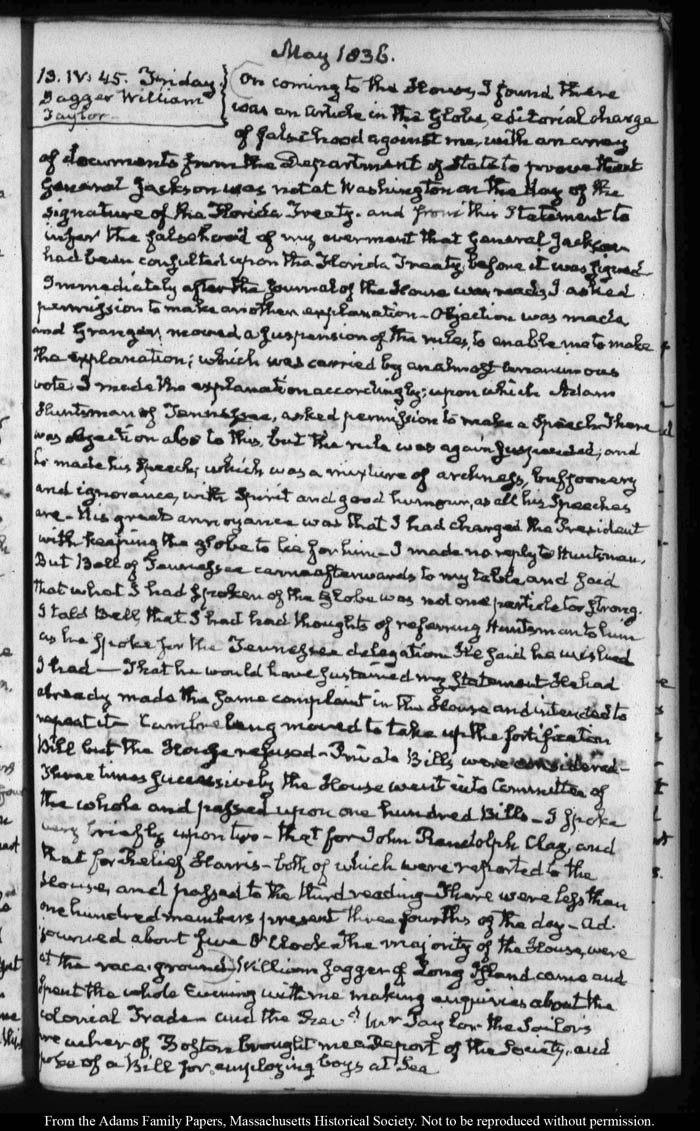 May 1836.
13. IV: 45. Friday.
Jagger William
Taylor
On coming to the House, I found there
was an Article in the Globe, editorial charge
of falsehood against me, with an array
of documents from the Department of State to prove that
General Jackson was not at Washington on the day of the
signature of the Florida Treaty. and from this Statement to
infer the falsehood of my averment that General Jackson
had been consulted upon the Florida Treaty before it was signed
Immediately after the Journal of the House was read, I asked
permission to make another explanation - Objection was made,
and Granger, moved a suspension of the rules, to enable me to make
the explanation; which was carried by an almost unanimous
vote. I made the explanation accordingly; upon which Adam
Huntsman of Tennessee, asked permission to make a Speech. There
was objection also to this, but the rule was again suspended; and
he made his Speech, which was a mixture of archness, buffoonery
and ignorance, with Spirit and good humour, as all his Speeches
are - His great annoyance was that I had charged the President
with keeping the Globe to lie for him - I made no reply to Huntsman.
But Bell of Tennessee came afterwards to my table, and said
that what I had spoken of the Globe was not one particle too strong.
I told Bell, that I had had thoughts of referring Huntsman to him
as he spoke for the Tennessee delegation He said he wished
I had — That he would have sustained my Statement He had
already made the same complaint in the House and intended to
repeat it - Cambreleng moved to take up the fortification
Bill but the House refused - Private Bills were considered -
Three times successively the House went into Committee of
the whole and passed upon one hundred Bills - I spoke
very briefly upon two - that for John Randolph Clay, and
that for Relief Harris - both of which were reported to the
House, and passed to the third reading - There were less than
one hundred members present three fourths of the day - Ad-
journed about five O'Clock. The majority of the House, were
at the race-ground) William Jagger of Long Island came and
spent the whole Evening with me making enquiries about the
Colonial Trade - and the Revd. Mr Taylor the Sailor's
preacher of Boston brought me a Report of the Society, and
of a Bill for employing boys at Sea
From the Adams Family Papers, Massachusetts Historical Society. Not to be reproduced without permission.